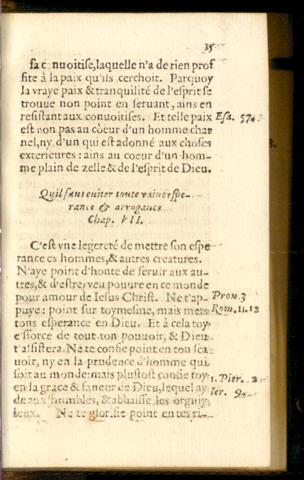 15
sa cōnuoitise, laquelle n'a de rien prof
fité à la paix qu'ils cerchoit. Parquoy
la vraye paix & tranquilité de l'esprit se
trouue non point en seruant, ains en
resistant aux conuoitises. Et telle paix Esa. 57.
est non pas au cœur d'un homme char
nel, ny d'un qui est adonné aux choses
exterieures : ains au cœur d'un hom-
me plain de zelle & de l'esprit de Dieu.
Qu'il faut euiter toute vaine espe-
rance & arrogance
Chap. VII.
C'est vne legereté de mettre son espe
rance es hommes, & autres creatures.
N'aye point d'honte de seruir aux au-
tres, & d'estre veu pouure en ce monde
pour amour de Iesus Christ. Ne t'ap- Prou. 3
puye point sur toymesme, mais mets Rom. 11.12
tons esperance en Dieu. Et à cela toy
efforce de tout ton pouuoir, & Dieu
t'assistera. Ne te confie point en ton sca
uoir, ny en la prudence d'homme qui
soit au monde: mais plustost confie toy 1. Pier.
en la grace & faueur de Dieu, lequel ay Ier. 9.
de aux humbles, & abbaisse les orguil
leux. Ne te glorifie point en tes ri-